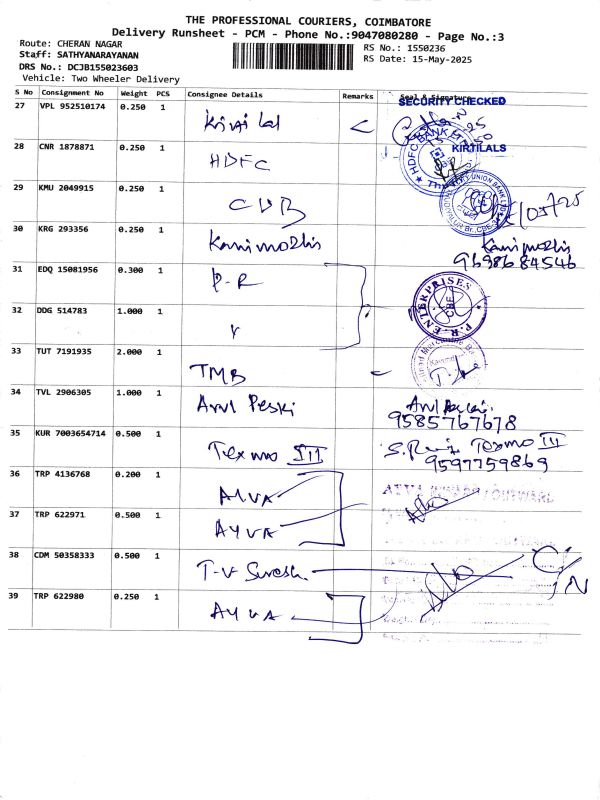 THE PROFESSIONAL COURIERS, COIMBATORE
Delivery Runsheet - PCM - Phone No.:9047080280 - Page No.:3
Route: CHERAN NAGAR
Staff: SATHYANARAYANAN
DRS No.: DCJB155023603
Vehicle: Two Wheeler Delivery
RS No.: 1550236
RS Date: 15-May-2025
S No Consignment No Weight PCS Consignee Details Remarks Seal & Signature
SECURITY CHECKED
27 VPL 952510174 0.250 1 Kirtilal
KIRTILALS
28 CNR 1878871 0.250 1 HDFC
HDFC BANK LTD
29 KMU 2049915 0.250 1 CUB
CITY UNION BANK LTD
30 KRG 293356 0.250 1 Kanimozhis Kanimozhis
9698684546
31 EDQ 15081956 0.300 1 P-R
P.R. ENTERPRISES
CBE
32 DDG 514783 1.000 1
33 TUT 7191935 2.000 1 TMB
34 TVL 2906305 1.000 1 Arul Peski
9585767678
35 KUR 7003654714 0.500 1 Texmo III Texmo III
9597759869
36 TRP 4136768 0.200 1 AYVA
37 TRP 622971 0.500 1 AYVA
38 CDM 50358333 0.500 1 T-V Suresh
39 TRP 622980 0.250 1 AYVA